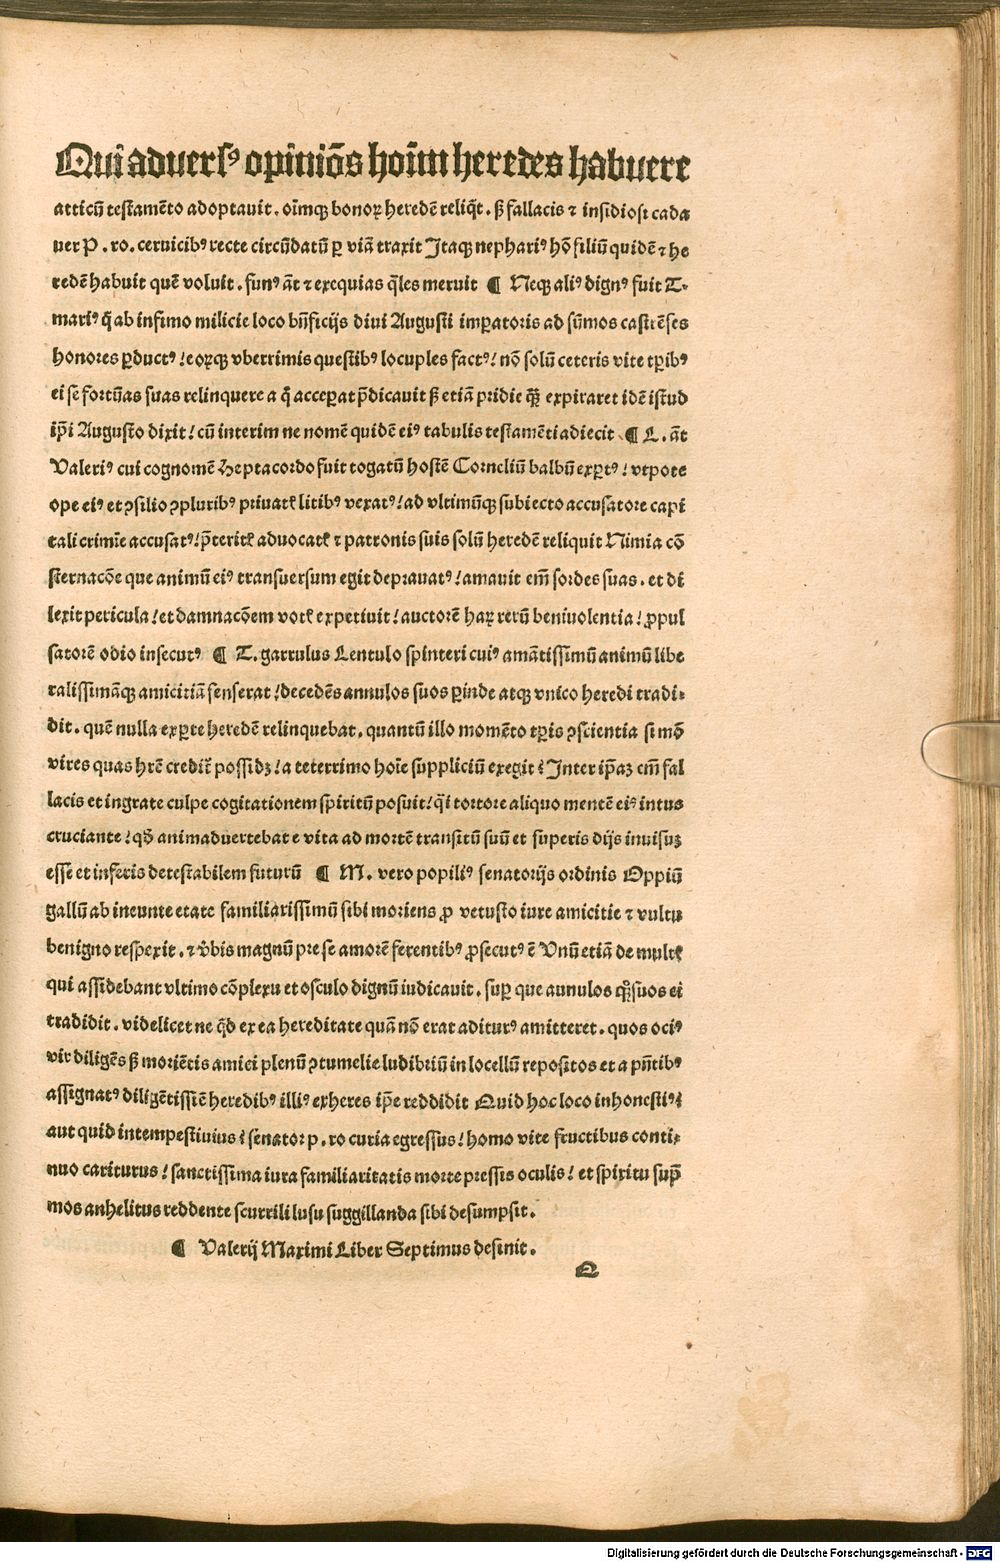 Qui aduersꝰ opiniōs hoīm heredes habuere
atticū testamēto adoptauit. oīmqꝫ bonoꝝ heredē reliq̄t. sꝫ fallacis ⁊ insidiosi cada
uer P. ro. ceruicibꝰ recte circūdatū ꝑ viā traxit Itaqꝫ nephariꝰ hō filiū quidē ⁊ he
redē habuit quē voluit. funꝰ āt ⁊ exequias q̄les meruit ¶ Neqꝫ aliꝰ dignꝰ fuit T.
mariꝰ q̄ ab infimo milicie loco bn̄ficijs diui Augusti imꝑatoris ad sūmos castrēses
honores ꝑductꝰ! eoꝝqꝫ vberrimis questibꝰ locuples factꝰ! nō solū ceteris vite tꝑibꝰ
ei se fortūas suas relinquere a q̄ acceꝑat p̄dicauit sꝫ etiā pridie qꝫ̄ expiraret idē istud
ip̄i Augusto dixit! cū interim ne nomē quidē eiꝰ tabulis testamēti adiecit ¶ L. āt
Valeriꝰ cui cognomē Heptacordo fuit togatū hostē Corneliū balbū exꝑtꝰ! vtpote
ope eiꝰ et ꝯsilio ꝯpluribꝰ priuatꝭ litibꝰ vexatꝰ! ad vltimūqꝫ subiecto accusatore capi
tali crimīe accusatꝰ! p̄teritꝭ aduocatꝭ ⁊ patronis suis solū heredē reliquit Nimia cō
sternacōe que animū eiꝰ transuersum egit deprauatꝰ! amauit em̄ sordes suas. et di
lexit pericula! et damnacōem votꝭ expetiuit! auctorē haꝝ rerū beniuolentia! ꝓpul
satorē odio insecutꝰ ¶ T. garrulus Lentulo spinteri cuiꝰ amātissimū animū libe
ralissimāqꝫ amicitiā senserat! decedēs annulos suos ꝑinde atqꝫ vnico heredi tradi⸗
dit. quē nulla exꝑte heredē relinquebat. quantū illo momēto tꝑis ꝯscientia si mō
vires quas hr̄e credit̄ possidꝫ! a teterrimo hoīe suppliciū exegit? Inter ip̄aꝫ em̄ fal
lacis et ingrate culpe cogitationem spiritū posuit! q̄i tortore aliquo mentē eiꝰ intus
cruciante! qđ animaduertebat e vita ad mortē transitū suū et superis dijs inuisuꝫ
esse et inferis detestabilem futurū ¶ M. vero popiliꝰ senatorijs ordinis Oppiū
gallū ab ineunte etate familiarissimū sibi moriens ꝓ vetusto iure amicitie ⁊ vultu
benigno respexit. ⁊ v̄bis magnū pre se amorē ferentibꝰ ꝓsecutꝰ ē Vnū etiā de multꝭ
qui assidebant vltimo cōplexu et osculo dignū iudicauit. suꝑ que annulos qꝫ suos ei
tradidit. videlicet ne q̄d ex ea hereditate quā nō erat aditurꝰ amitteret. quos ociꝰ
vir diligēs sꝫ moriētis amici plenū ꝯtumelie ludibriū in locellū repositos et a pn̄tibꝰ
assignatꝰ diligētissiē heredibꝰ illiꝰ exheres ip̄e reddidit Quid hoc loco inhonestiꝰ?
aut quid intempestiuius? senator p. ro curia egressus! homo vite fructibus conti⸗
nuo cariturus! sanctissima iura familiaritatis morte pressis oculis! et spiritu sup̄
mos anhelitus reddente scurrili lusu suggillanda sibi desumpsit.
¶ Valerij Maximi Liber Septimus desinit.